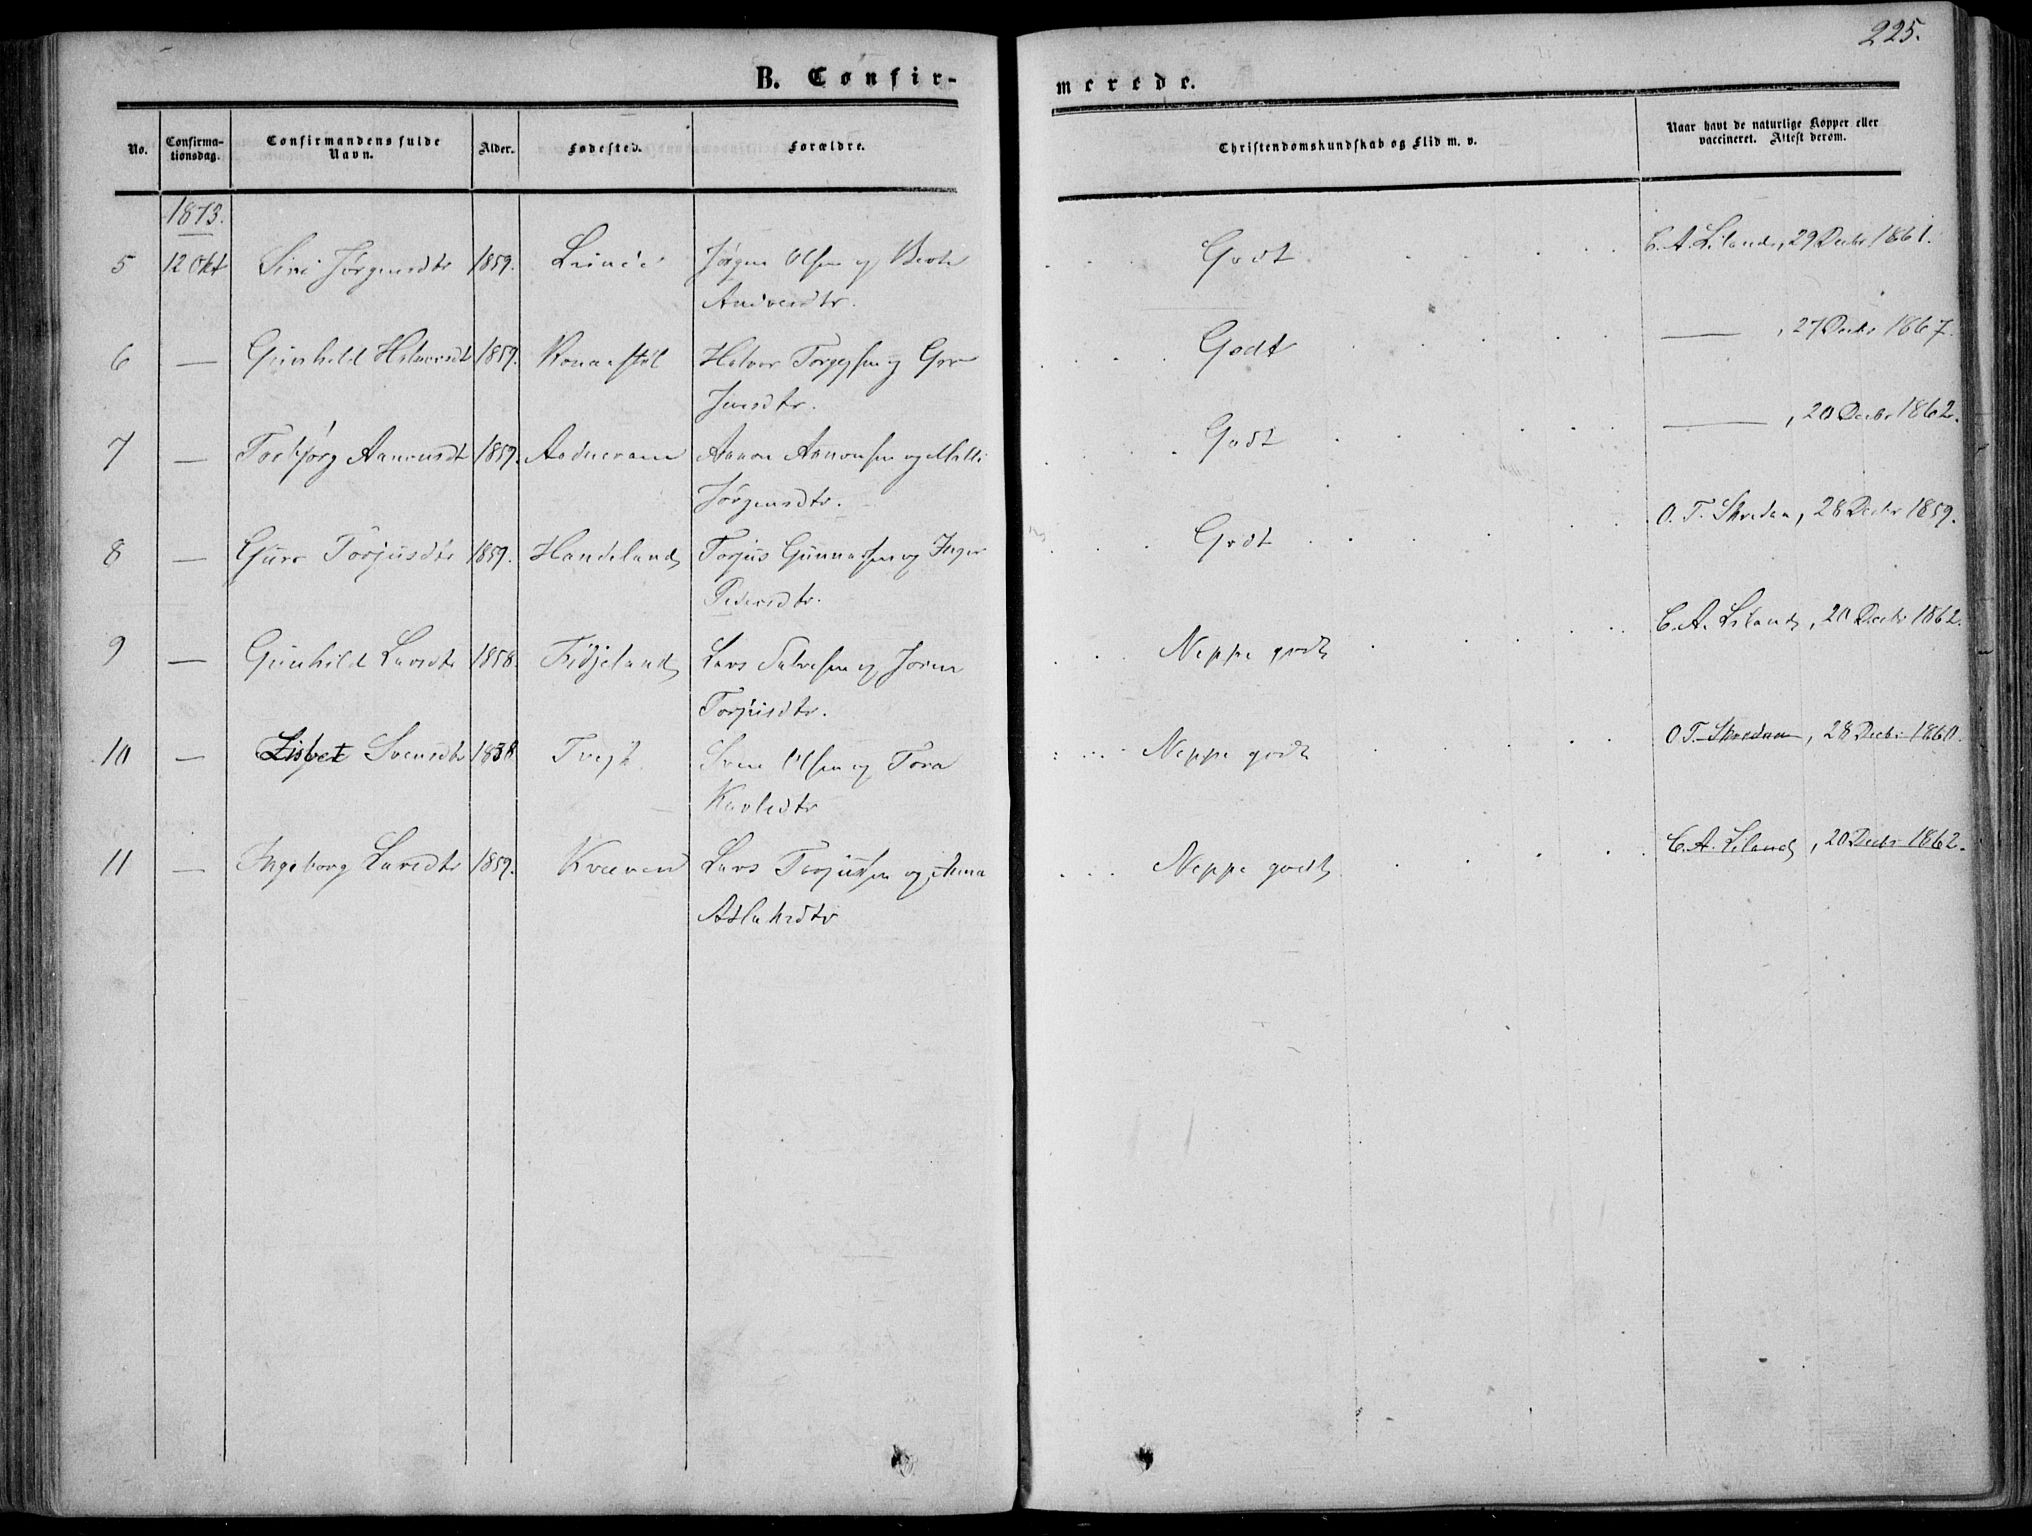 225.
B. Confir-
merede.
No.
Confirma-
tionsdag.
Confirmandens fulde
Navn.
Alder.
Fødested.
Forældre.
Christendomskundskab og Flid m. v.
Naar havt de naturlige Kopper eller
vaccineret. Attest derom.
1873.
5 12 Okt Siri Jørgensdtr 1859. Jørgen Olsen og Berte Godt C. A. Liland, 29 Decbr 1861.
6 — Gunhild Halvorsdt 1859. Halvor Godt — , 27 Decbr 1867.
7 — Torbjørg Aanensdt 1859. Aadneram Aanen Aanensen og Malli Godt — , 20 Decbr 1862.
Jørgensdtr.
8 — Guro Torjusdtr 1859. Handeland Torjus Gunnarsen og Inger Godt O. T. Skredaa, 28 Decbr 1859.
Pedersdtr.
9 — Gunhild Larsdtr 1858. Fidjeland Lars Salvesen og Joren Neppe godt C. A. Liland, 20 Decbr 1862.
Torjusdtr.
10 — Lisbet Svensdtr 1858 Sven Olsen og Tora Neppe godt O T. Skredaa, 28 Decbr 1860.
11 — Ingeborg Larsdtr 1859. Kvæven Lars Torjussen og Anna Neppe godt C. A. Liland, 20 Decbr 1862.
Aslaksdtr